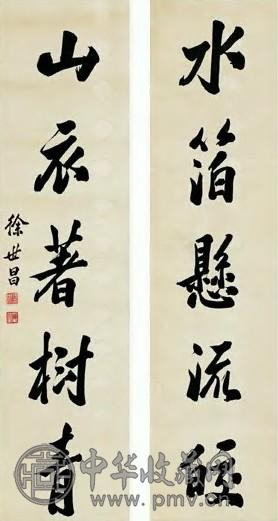 水箔懸流
山衣著樹青
徐世昌
中华收藏网
www.pmv.cn